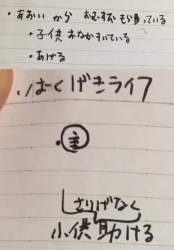 ・あおい から おむすび もら って いる
・子供 おなかすいている
・あげる
いばくげきライフ
・主
さりげなく
小供 助ける